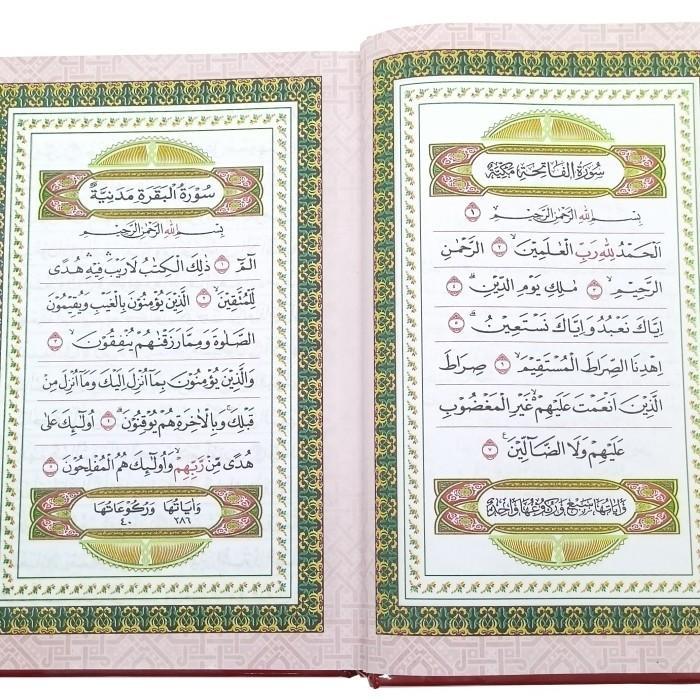 سُورَةُ الْفَاتِحَةِ مَكِّيَّةٌ
بِسْمِ اللهِ الرَّحْمٰنِ الرَّحِيْمِ ١
اَلْحَمْدُ لِلّٰهِ رَبِّ الْعٰلَمِيْنَۙ ٢ الرَّحْمٰنِ
الرَّحِيْمِۙ ٣ مٰلِكِ يَوْمِ الدِّيْنِۗ ٤
اِيَّاكَ نَعْبُدُ وَاِيَّاكَ نَسْتَعِيْنُۗ ٥
اِهْدِنَا الصِّرَاطَ الْمُسْتَقِيْمَۙ ٦ صِرَاطَ
الَّذِيْنَ اَنْعَمْتَ عَلَيْهِمْۙ غَيْرِ الْمَغْضُوْبِ
عَلَيْهِمْ وَلَا الضَّاۤلِّيْنَ ٧
وَاٰيَاتُهَا سَبْعٌ وَرُكُوْعُهَا وَاحِدٌ
سُوْرَةُ الْبَقَرَةِ مَدَنِيَّةٌ
بِسْمِ اللهِ الرَّحْمٰنِ الرَّحِيْمِ
الۤمّۤۗ ١ ذٰلِكَ الْكِتٰبُ لَا رَيْبَۛ فِيْهِۛ هُدًى
لِّلْمُتَّقِيْنَۙ ٢ الَّذِيْنَ يُؤْمِنُوْنَ بِالْغَيْبِ وَيُقِيْمُوْنَ
الصَّلٰوةَ وَمِمَّا رَزَقْنٰهُمْ يُنْفِقُوْنَۙ ٣
وَالَّذِيْنَ يُؤْمِنُوْنَ بِمَآ اُنْزِلَ اِلَيْكَ وَمَآ اُنْزِلَ مِنْ
قَبْلِكَۚ وَبِالْاٰخِرَةِ هُمْ يُوْقِنُوْنَۗ ٤ اُولٰۤىِٕكَ عَلٰى
هُدًى مِّنْ رَّبِّهِمْۙ وَاُولٰۤىِٕكَ هُمُ الْمُفْلِحُوْنَ ٥
وَاٰيَاتُهَا وَرُكُوْعَاتُهَا
٢٨٦ ٤٠